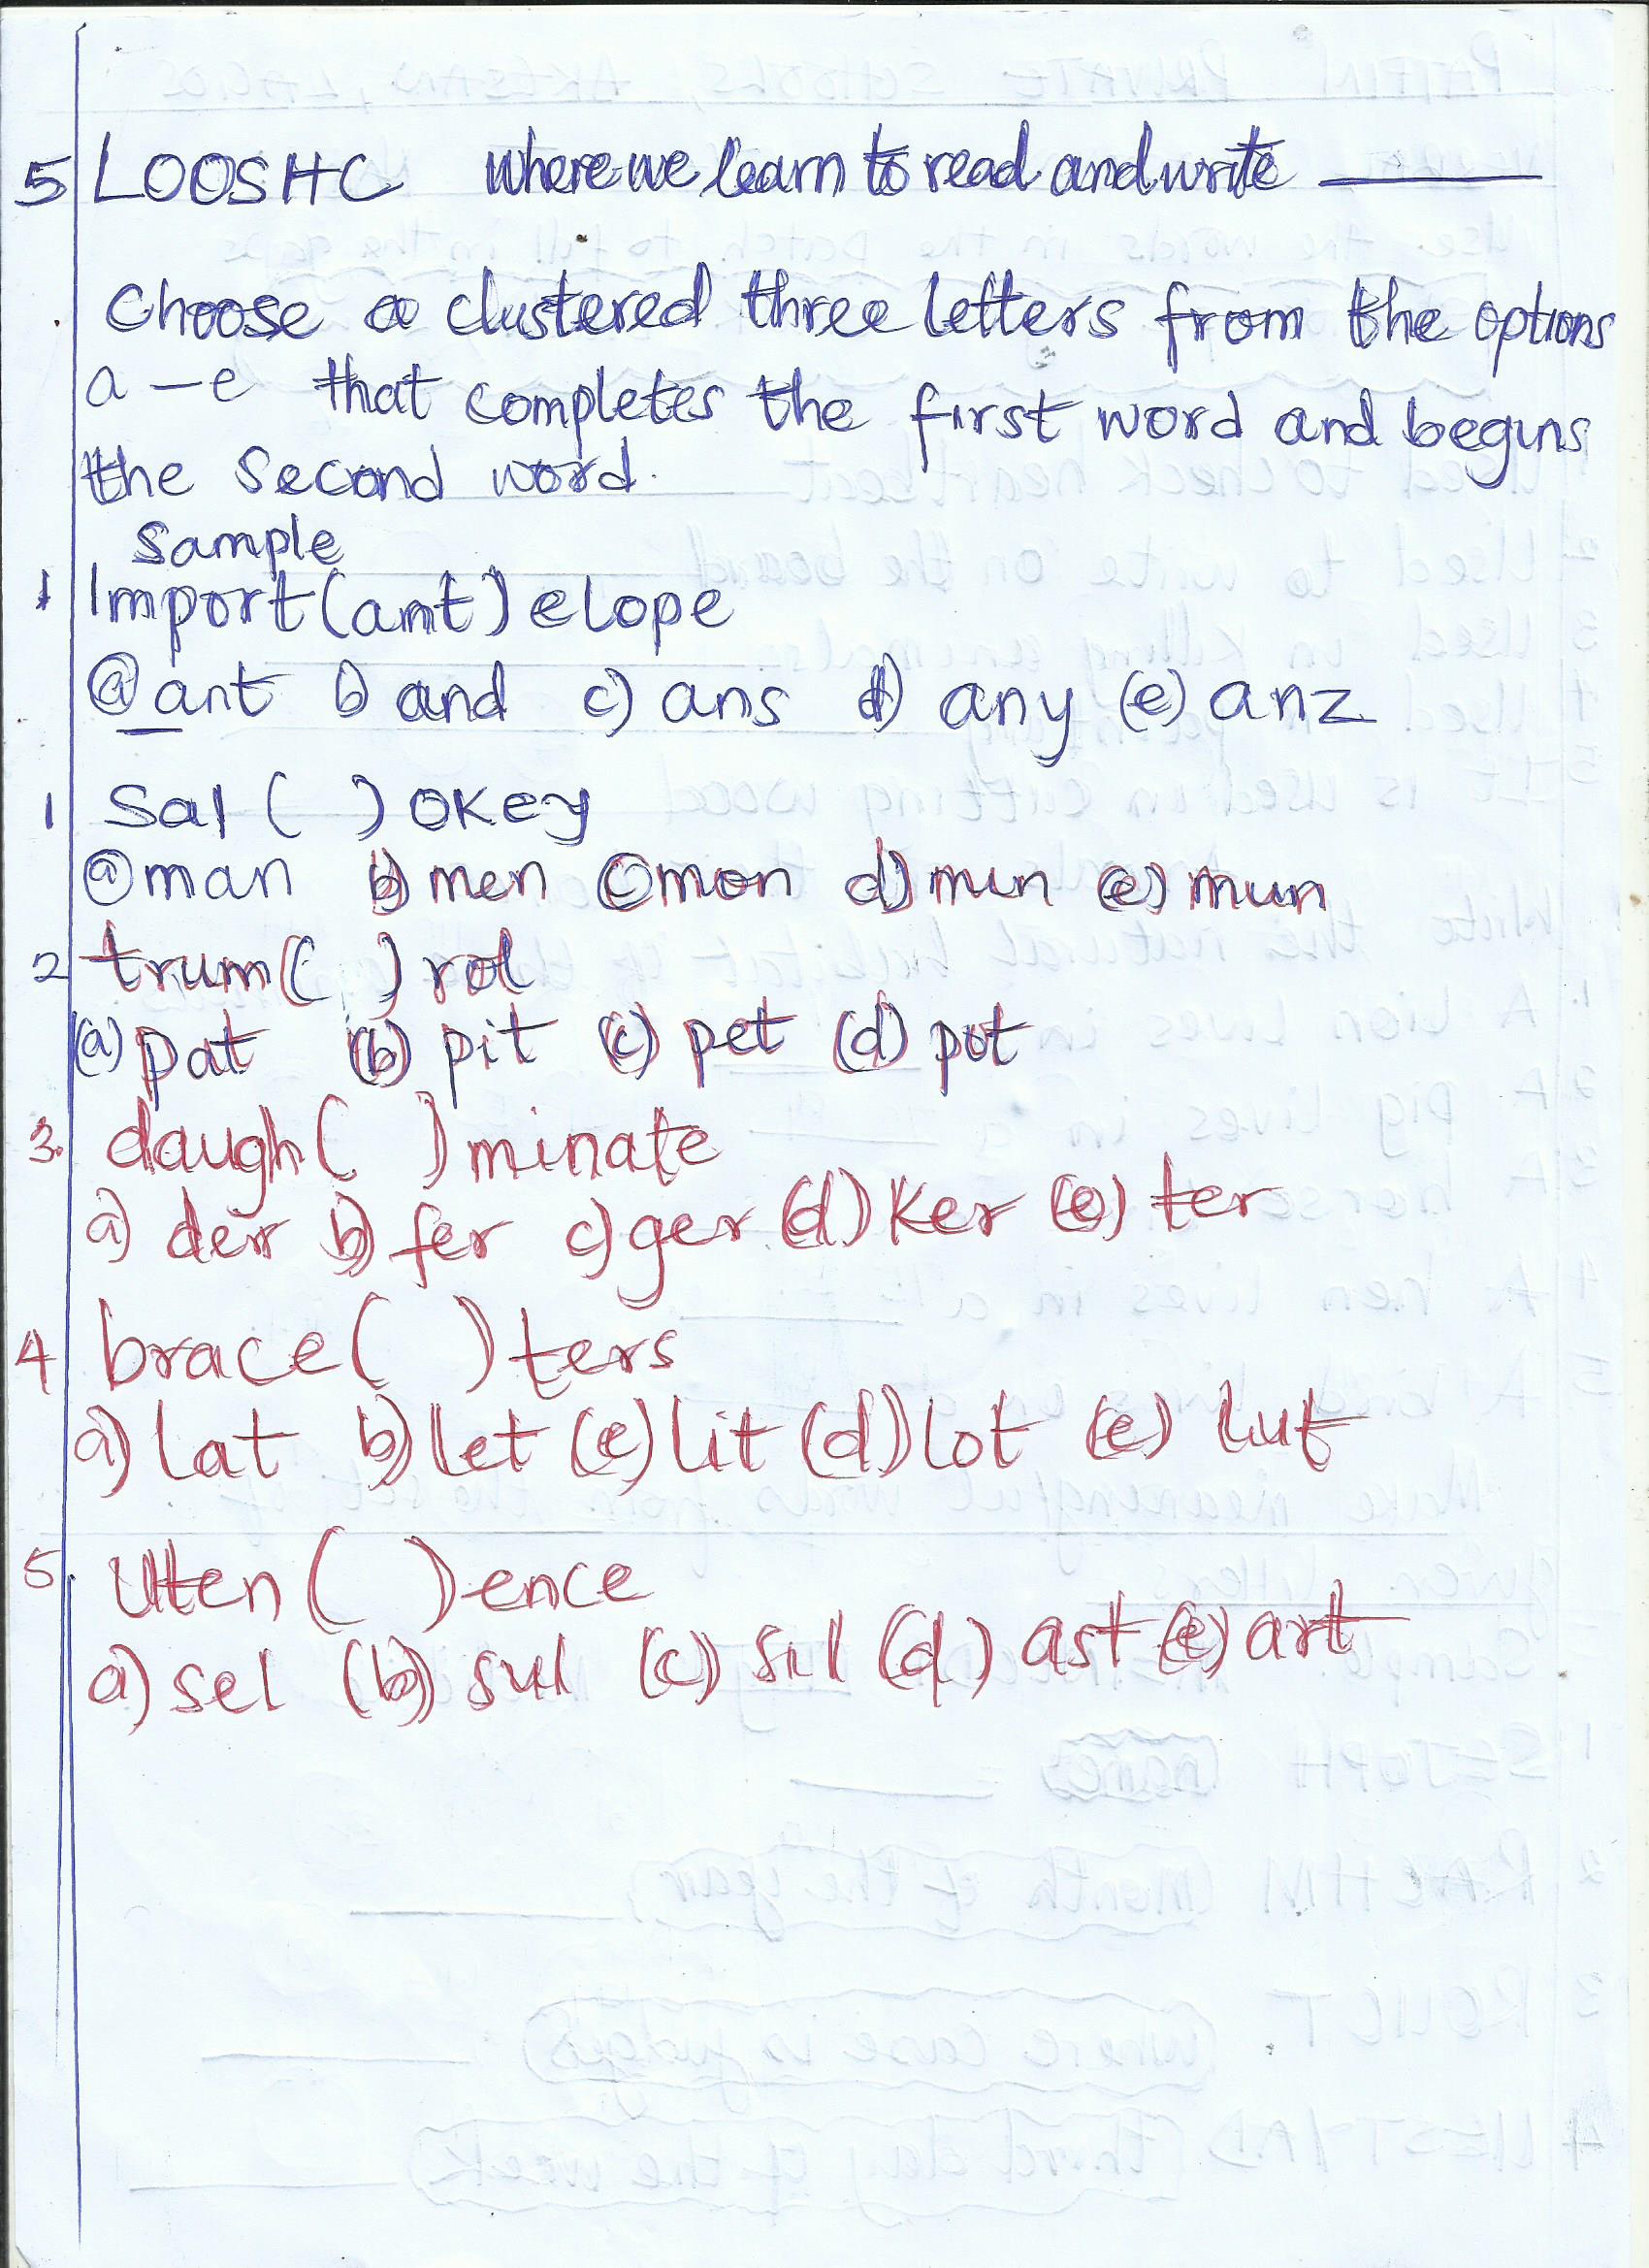 5 LOOSHC where we learn to read and write ______
Choose a clustered three letters from the options
a - e that completes the first word and begins
the second word.
Sample
1 Import (ant) elope
(a) ant b) and c) ans d) any (e) anz
1 Sal ( ) okey
(a) man b) men (c) mon d) min (e) mun
2 trum ( ) rol
(a) pat (b) pit (c) pet (d) pot
3. daugh ( ) minate
a) der b) fer c) ger (d) ker (e) ter
4 brace ( ) ters
a) lat b) let (c) lit (d) lot (e) lut
5. Uten ( ) ence
a) sel (b) sul (c) sil (d) ast (e) art